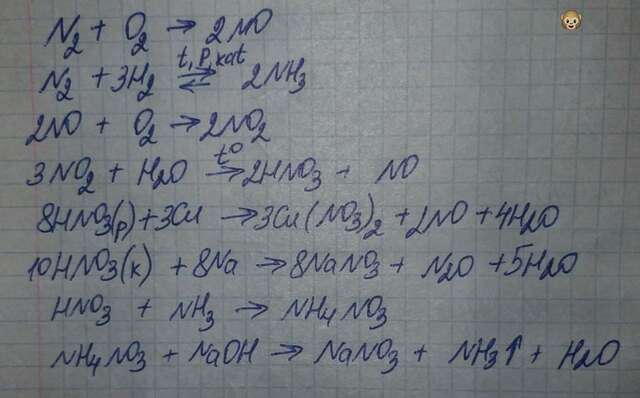 N₂ + O₂ → 2NO
N₂ + 3H₂ ⇌ 2NH₃ t, P, kat
2NO + O₂ → 2NO₂
3NO₂ + H₂O → 2HNO₃ + NO t⁰
8HNO₃(р) + 3Cu → 3Cu(NO₃)₂ + 2NO + 4H₂O
10HNO₃(к) + 8Na → 8NaNO₃ + N₂O + 5H₂O
HNO₃ + NH₃ → NH₄NO₃
NH₄NO₃ + NaOH → NaNO₃ + NH₃↑ + H₂O